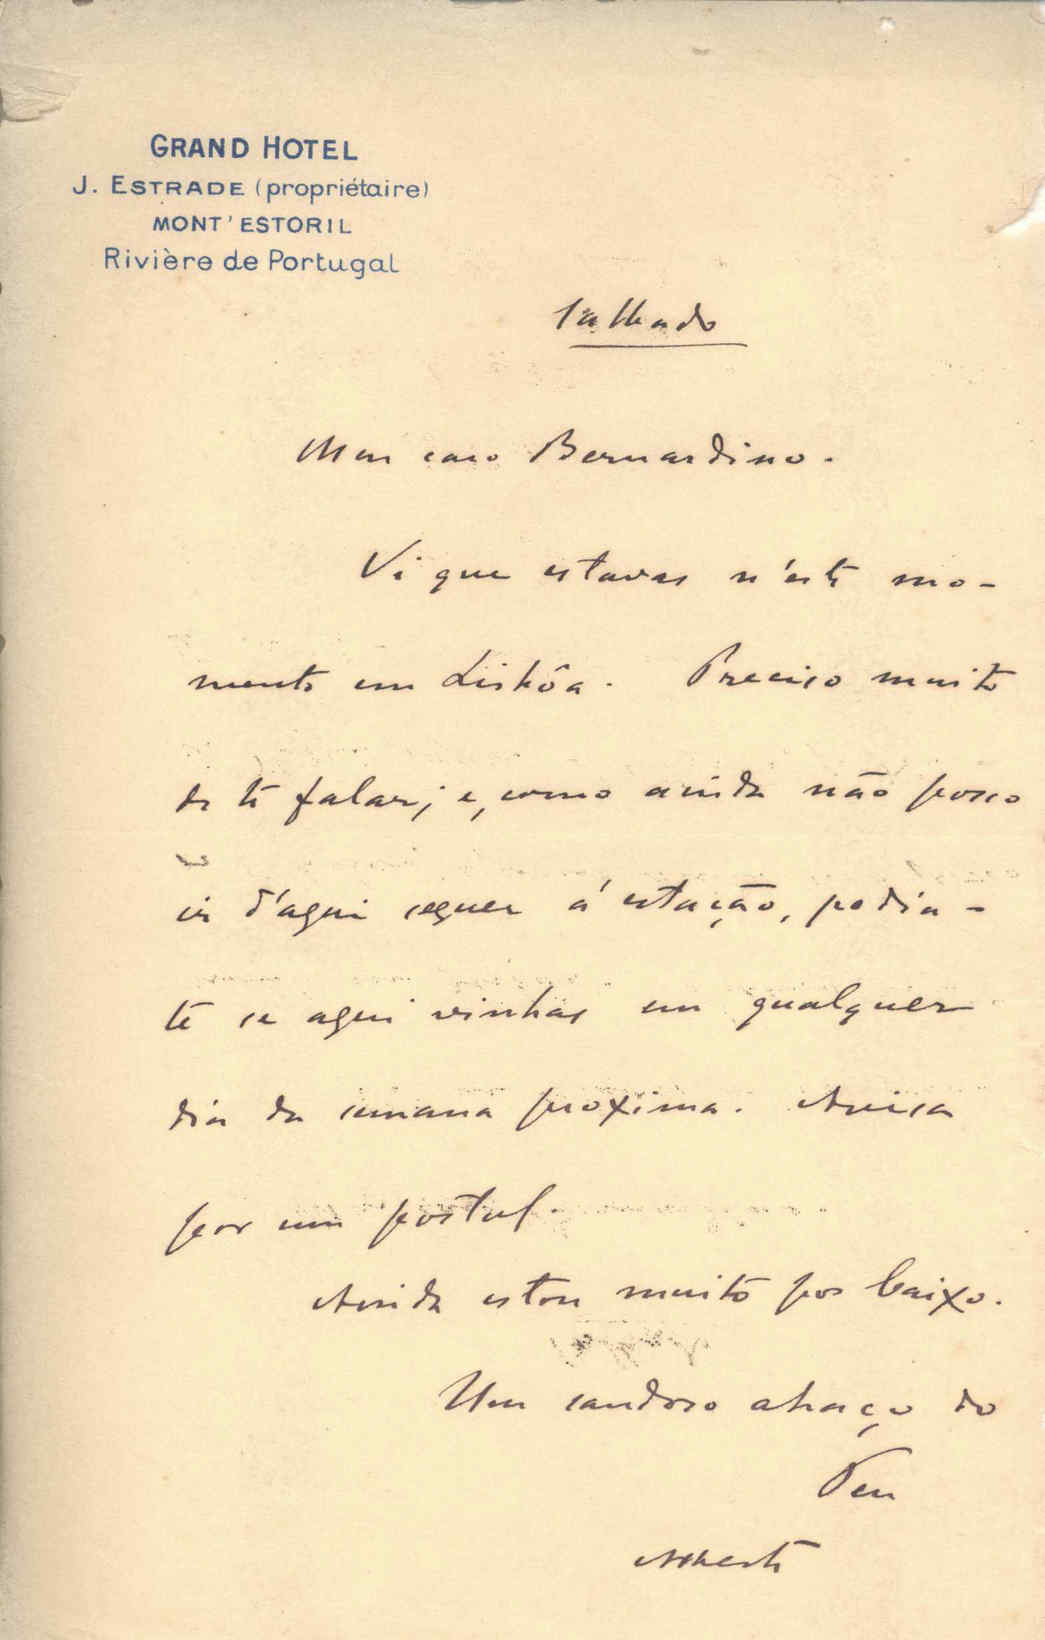 GRAND HOTEL
J. ESTRADE (propriétaire)
MONT'ESTORIL
Rivière de Portugal
Sabbado
Meu caro Bernardino.
Vi que estavas n'este mo-
mento em Lisbôa. Preciso muito
de te falar; e, como ainda não posso
ir d'aqui sequer á estação, pedia-
te se aqui vinhas em qualquer
dia da semana proxima. Avisa
por um postal.
Ainda estou muito por baixo.
Um saudoso abraço do
Teu
Alberto